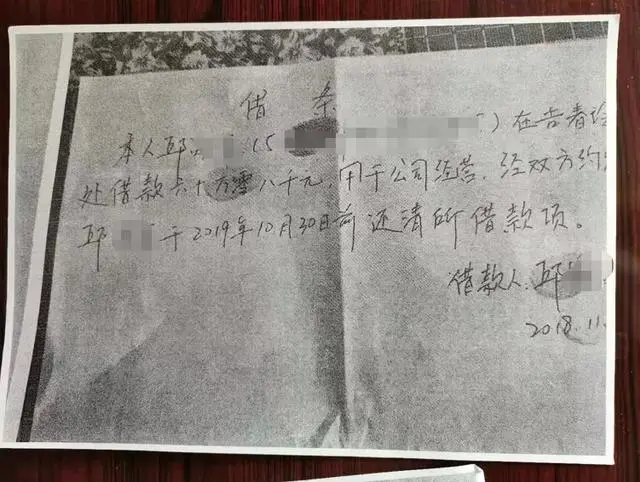 借条
本人邱 15 ) 在告春
处借款六十万零八千元,用于公司经营,经双方约
邱 于2019年10月30日前还清所借款项。
借款人:邱
2018.11.